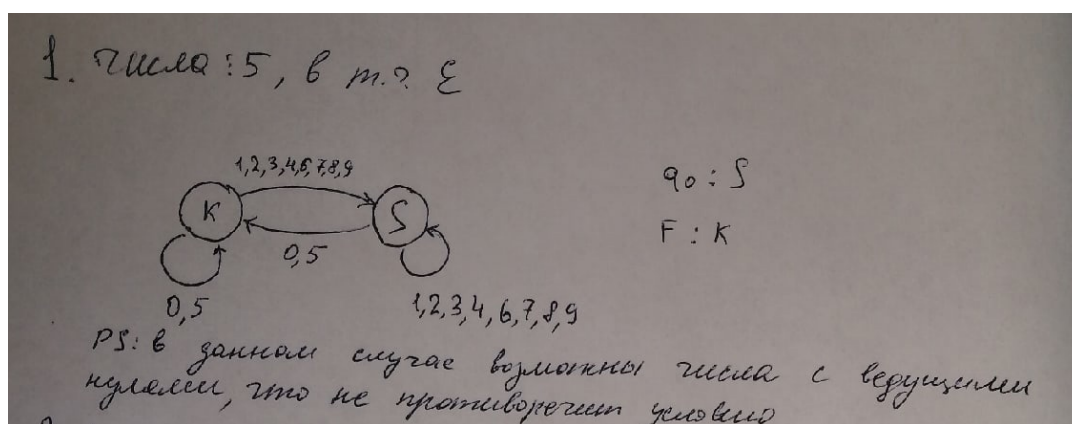 1. Числа ⋮ 5, в т.ч. ε
1,2,3,4,6,7,8,9
q₀ : S
K
S
F : K
0,5
0,5
1,2,3,4,6,7,8,9
PS: в данном случае возможны числа с ведущими
нулями, что не противоречит условию